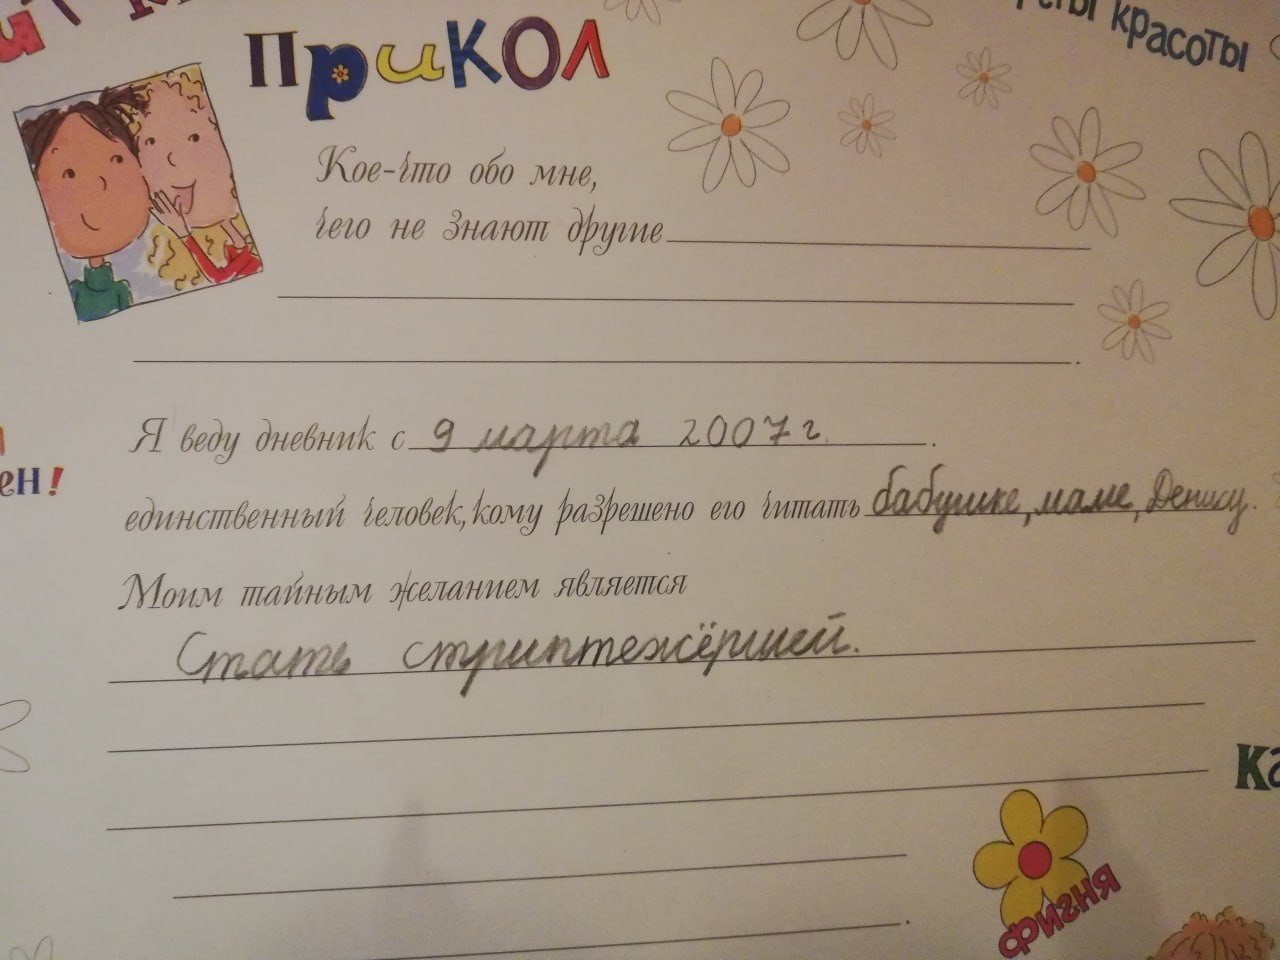 ПРИКОЛ
красоты
Кое-что обо мне,
чего не знают другие
Я веду дневник с 9 марта 2007 г.
ен!
единственный человек, кому разрешено его читать бабушке, маме, Денису.
Моим тайным желанием является
Стать стриптежёршей.
фигня